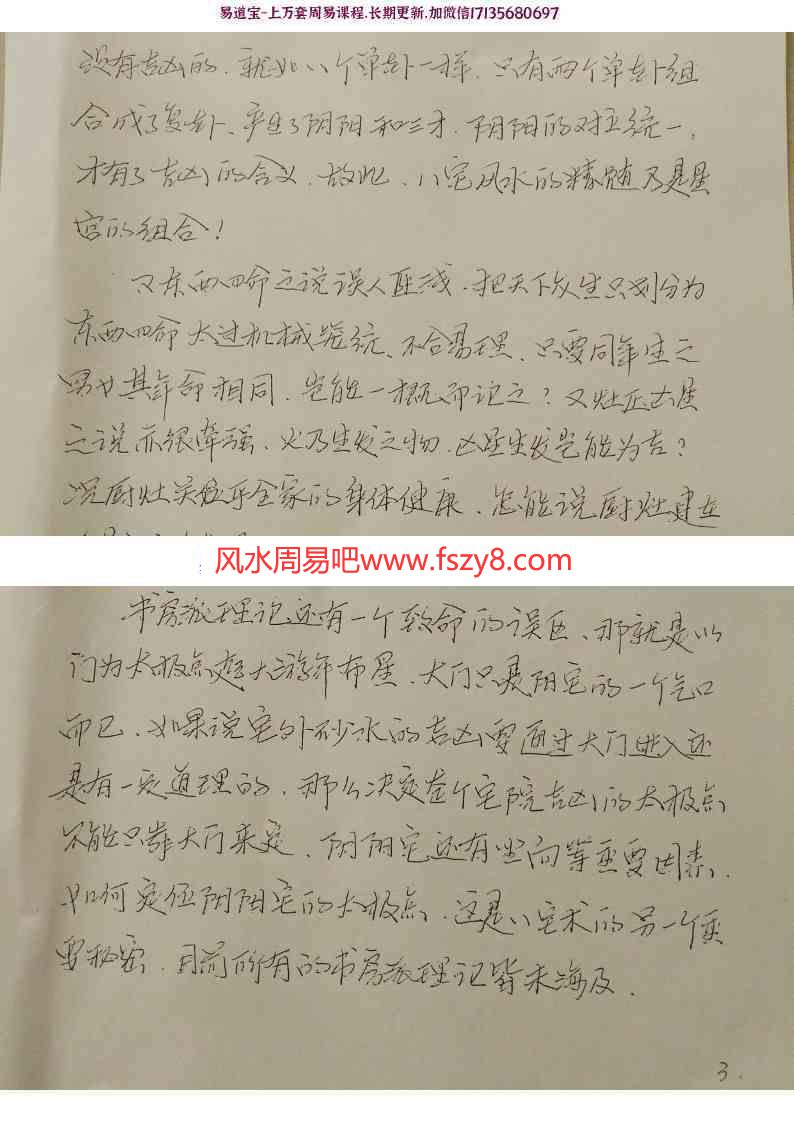 易道宝-上万套周易课程.长期更新.加微信17135680697
没有吉凶的，就如八个单卦一样，只有两个单卦组
合成了复卦、产生了阴阳和三才，阴阳的对立统一，
才有了吉凶的含义，故此，八宅风水的精髓乃是星
宫的组合！
又东西四命之说误人匪浅，把天下众生只划分为
东西四命太过机械笼统、不合易理，只要同年生之
男女其年命相同，岂能一概而论之？又灶压
之说亦很牵强，火乃生发之物，凶星生发岂能为吉？
况厨灶关系乎全家的身体健康，怎能说厨灶建在
风水周易吧www.fszy8.com
书房派理论还有一个致命的误区、那就是以
门为太极点起大游年布星，大门只是阳宅的一个气口
而已，如果说宅外砂水的吉凶要通过大门进入还
是有一定道理的，那么决定整个宅院吉凶的太极点
不能只靠大门来定，阴阳宅还有坐向等重要因素，
如何定位阴阳宅的太极点，这是八宅术的另一个重
要秘密，目前所有的书房派理论皆未涉及．
3．